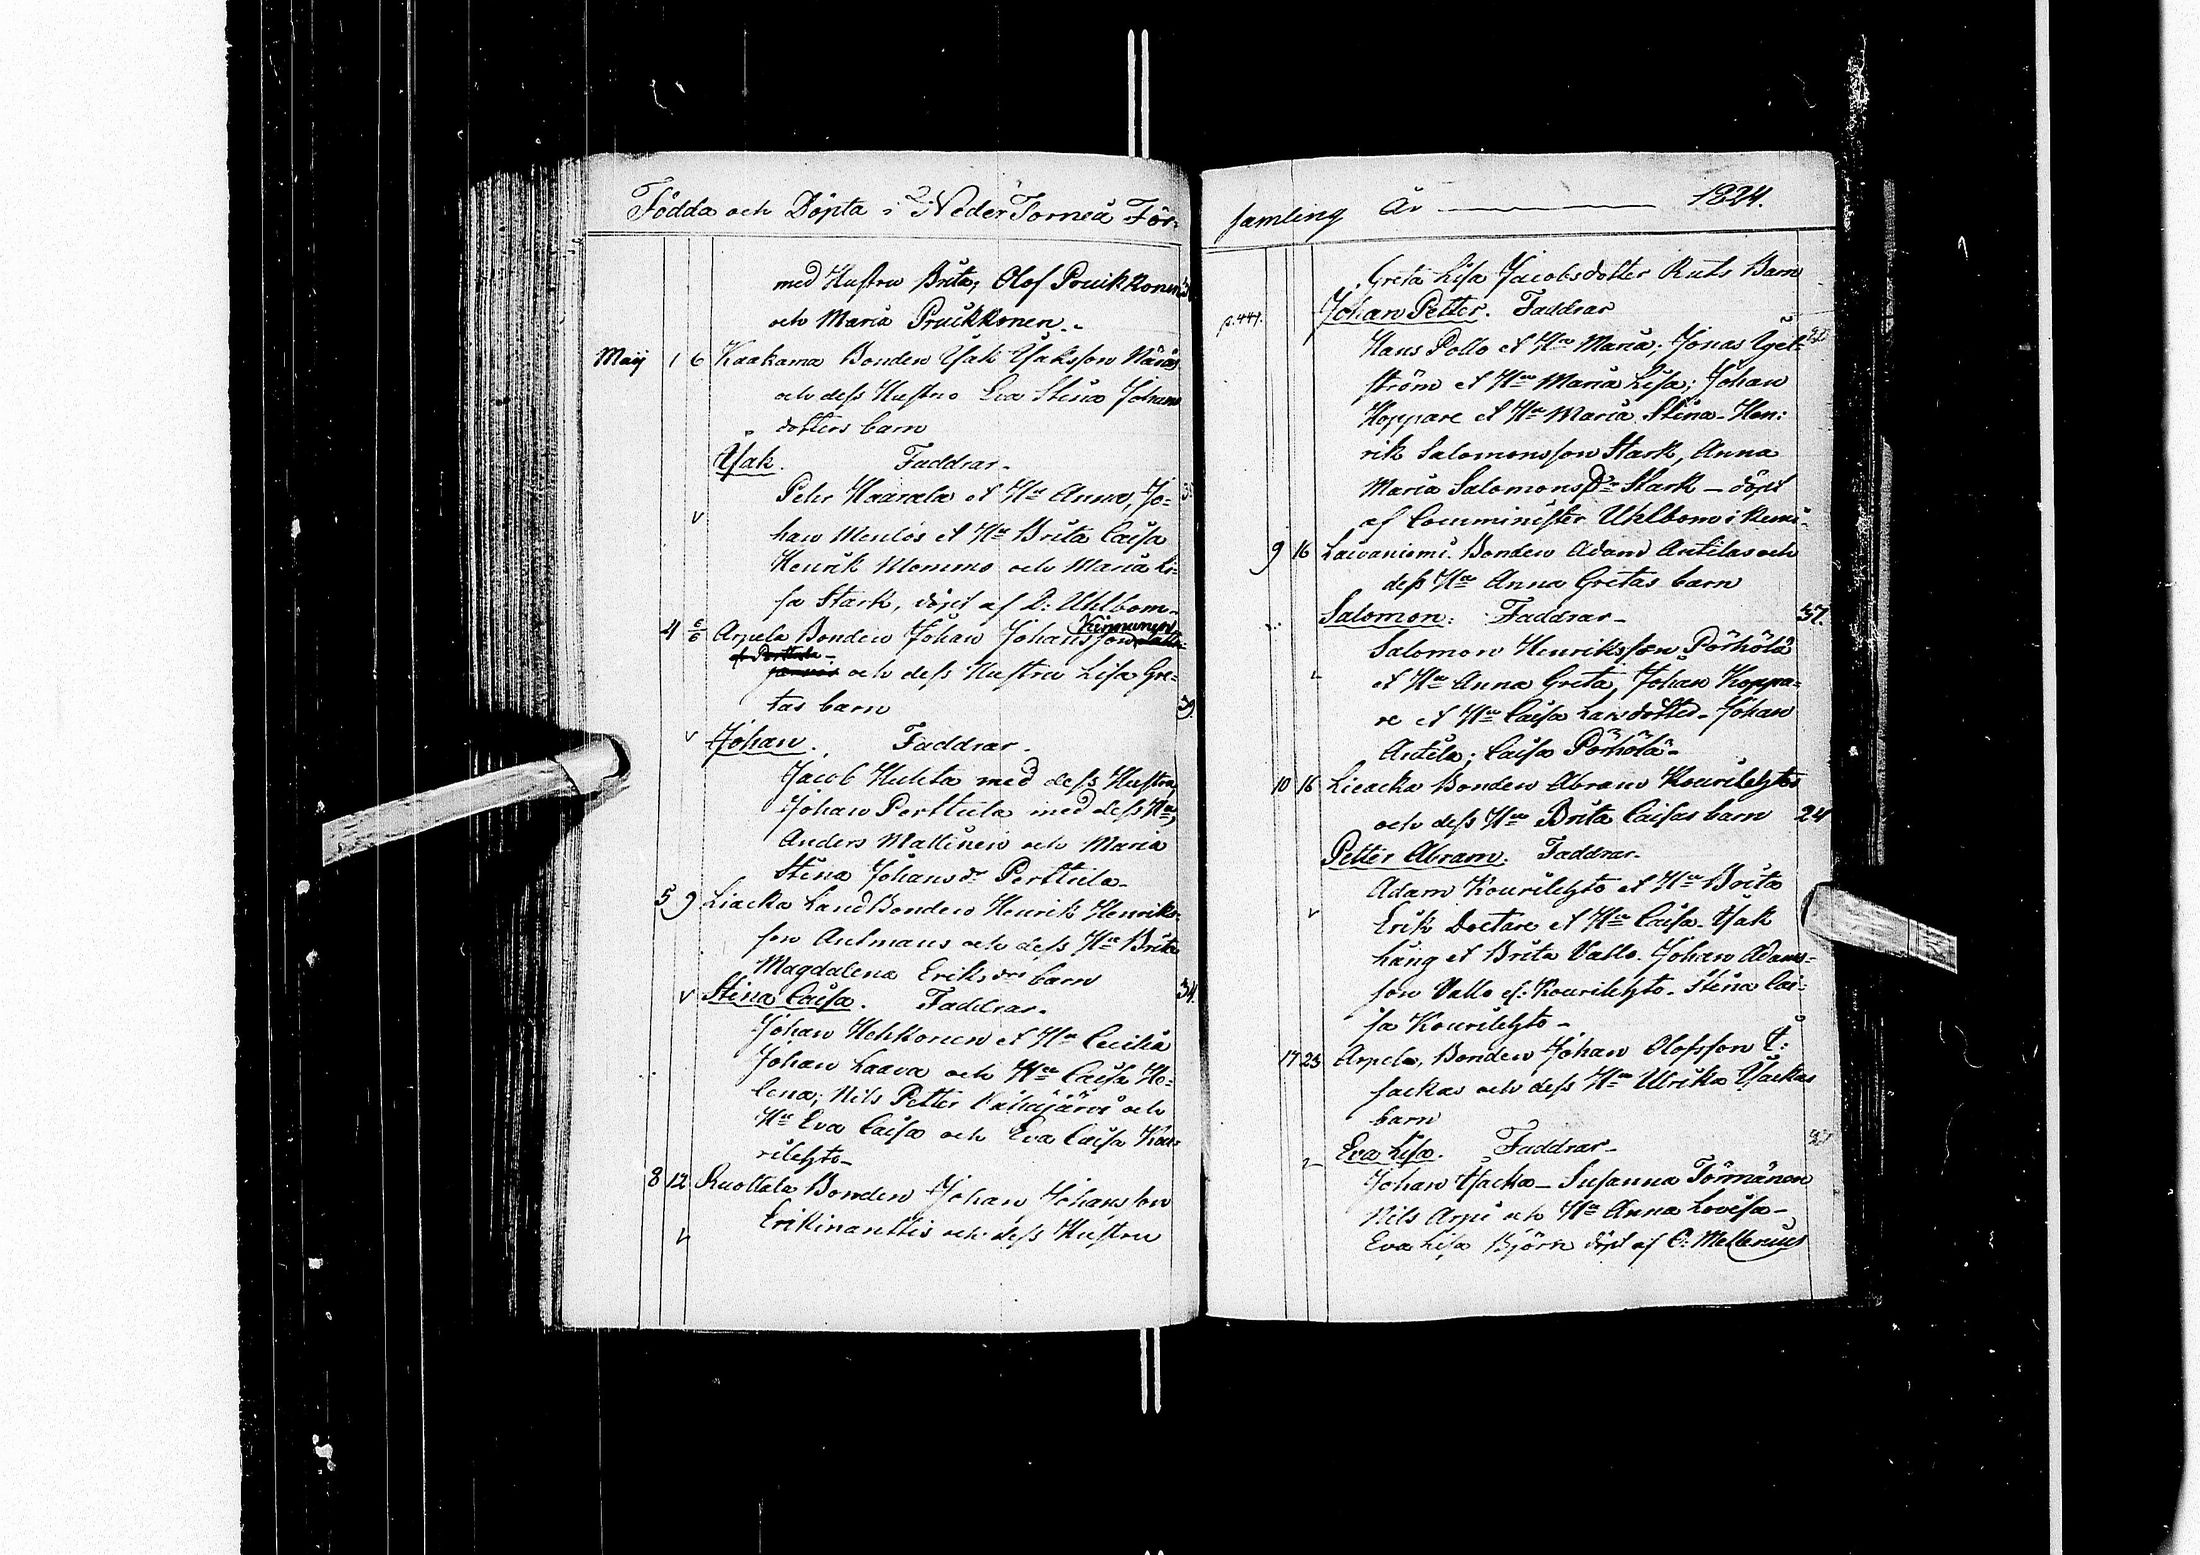 Födda och Döpta i Neder Torneå För-
med Hustru Brita; Olof Pruikkonen
och Maria Pruikkonen.-
Maij 1 6 Kaakama Bonden Isak Isaksson
och dess Hustru Eva Stina Johans
dotters barn
Isak. Faddrar-
Pehr Haarala et Hu Anna, Jo-
v
han Menlös et Hu Brita Caisa
Henrik Mommo och Maria Li-
sa Stark, döpt af D: Uhlbom-
Kinnunen
4 6/6 Arpela Bonden Johan Johansson
och dess Hustru Lisa Gre-
tas barn 39.
v Johan. Faddrar-
Jacob Huhta med dess Hustru,
Johan Perttula med dess Hu,
Anders Mattinen och Maria
Stina Johansdr Perttula-
5 9 Liacka LandBonden Henrik Henriks-
son Aulmans och dess Hu Brita
Magdalena Eriksdrs barn
v Stina Caisa. Faddrar- 34.
Johan Hekkonen et Hu Cecilia
Johan Laava och Hu Caisa He-
lena; Nils Petter och
Hu Eva Caisa och Eva Caisa Kou-
rilehto-
8 12 Ruottala Bonden Johan Johansson
Erikinanttis och dess Hustru
v
samling År 1824.
Greta Lisa Jacobsdotter Ruts Barn
p.441. Johan Petter. Faddrar
Hans Pollo et Hu Maria; Jonas Ygel-
ström et Hu Maria Lisa; Johan
Hoppare et Hu Maria Stina- Hen:
rik Salomonsson Stark, Anna
Maria Salomons Dr Stark - döpt
af Comminister Uhlbom i Kemi-
9 16 Laivaniemi Bonden Adam Antilas och
dess Hu Anna Gretas barn
Salomon: Faddrar- 37.
Salomon Henriksson Pörhölä
v et Hu Anna Greta, Johan Hoppa-
re et Hu Caisa Larsdotter- Johan
Antila; Caisa Pörhölä-
10 16 Lieacka Bonden Abram Kourilehtos
och dess Hu Brita Caisas barn 24
Petter Abram. Faddrar-
Adam Kourilehto et Hu Brita
v Erik Doctare et Hu Caisa- Isak
Häng et Brita Vallo. Johan Adams-
son Vallo et: Kourilehto- Stina Cai-
sa Kourilehto-
17 23 Arpela, Bonden Johan Olofsson I:
sackas och dess Hu Ulrika Isackas
barn
v Eva Lisa. Faddrar-
Johan Isacka- Susanna Törmänen
Nils Arpi och Hu Anna Lovisa-
Eva Lisa Björn döpt af C: Mellenius